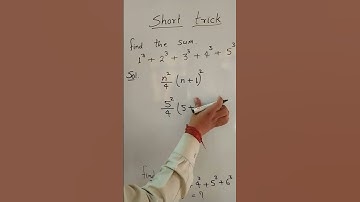 Short trick
find the sum
1³ + 2³ + 3³ + 4³ + 5³
Sol n²/4 (n+1)²
5²/4 (5+
find
4³ + 5³ + 6³
= ?